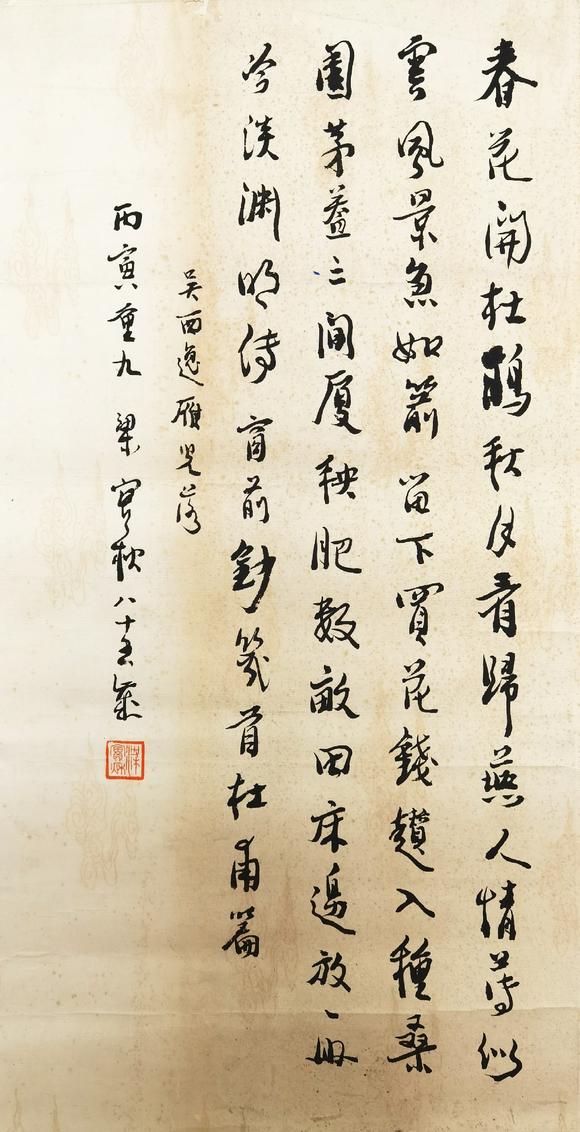 春花開杜鵑秋月看歸燕人情薄似
雲風景急如箭留下買花錢趲入種桑
園茅蓋三間厦秧肥數畝田床邊放一冊
冷淡淵明傳窗前鈔幾首杜甫篇
吳西逸雁兒落
丙寅重九 梁實秋八十五歲